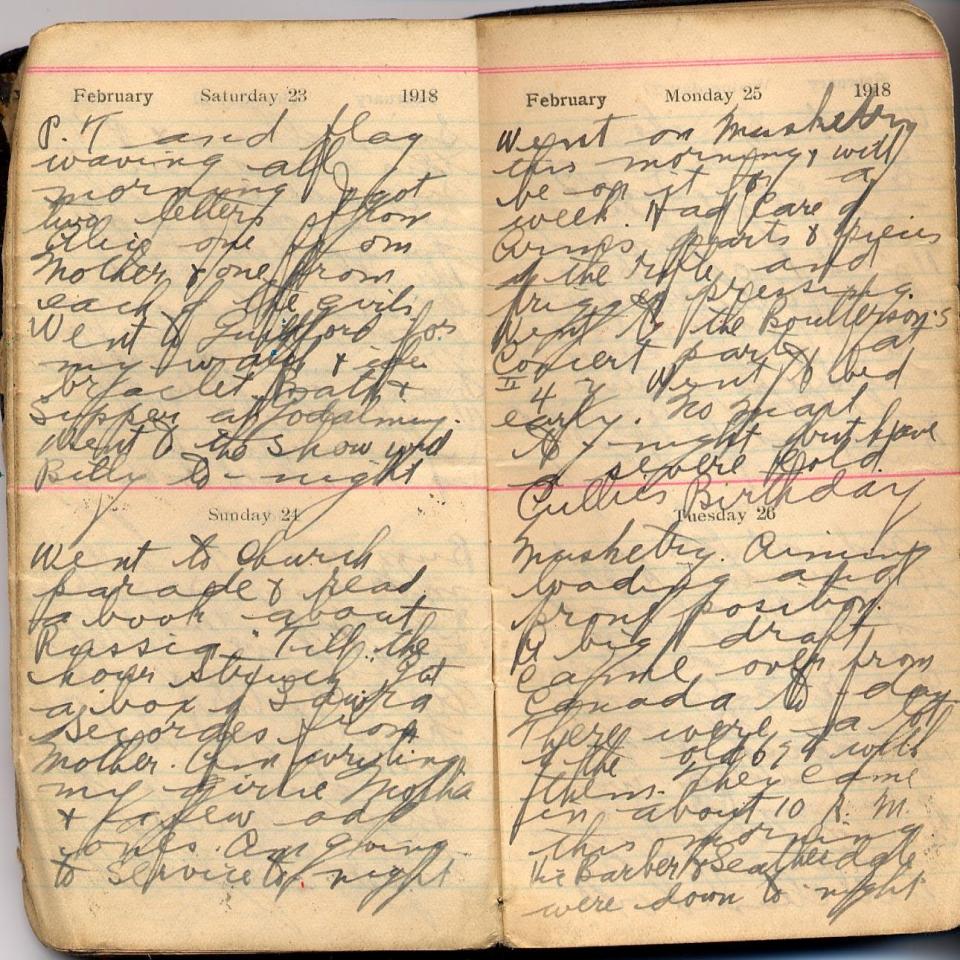 February Saturday 23 1918
P. T and flag
waving all
morning I got
two letters from
Alie one from
Mother & one from
each of the girls
Went to Guildford for
my watch &
bracelet. Bath &
Supper at Godalming.
Went to the Show with
Billy to-night
Sunday 24
Went to Church
parade & read
a book about
Russia. "Till the
hour Struck" Got
a box of
from
Mother. Am writing
my girlie Mother
& a few odd
ones. Am going
to Service to night
February Monday 25 1918
Went on Musketry
this morning, & will
be on it for a
week. Had Care of
Arms, parts & pieces
of the rifle, and
trigger pressing.
Went to the Boulterson's
Concert party at
Went to bed
early. No meat
to-night but have
a severe Cold.
Cullie's Birthday
Tuesday 26
Musketry. Aiming
loading and
front position.
A big draft
came over from
Canada to-day.
There were a lot
of the old 69th with
them. They came
in about 10 A. M.
this morning.
Barber &
were down to night